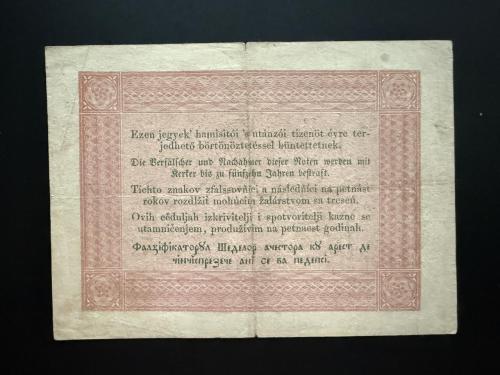 Ezen jegyek' hamisitói 's utánzói tizenöt évre ter-
jedhető börtönöztetéssel büntettetnek.
Die Verfälscher und Nachahmer dieser Noten werden mit
Kerker bis zu fünfzehn Jahren bestraft.
Tichto znakov zfalssovňíci a následňíci na petnást
rokov rozdlžit mohúcím žalárstvom sa trescú.
Ovih céduljah izkrivitelji i spotvoritelji kazne se
utamničenjem, produživim na petnaest godinah.
Фалціфікаторʋл Шеделор ачестора кʋ арест де
чінчіспрезече ані се ва педепсі.